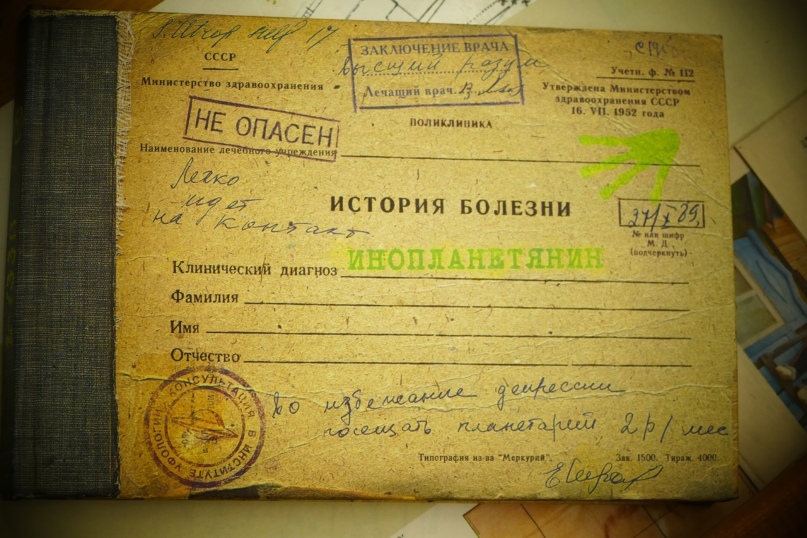 СССР
Министерство здравоохранения
ЗАКЛЮЧЕНИЕ ВРАЧА
Высший разум
Лечащий врач
Учетн. ф. № 112
Утверждена Министерством
здравоохранения СССР
16. VII. 1952 года
НЕ ОПАСЕН
ПОЛИКЛИНИКА
Наименование лечебного учреждения
Легко
идет
на контакт
ИСТОРИЯ БОЛЕЗНИ
27/X 89,
№ или шифр
М. Д.
(подчеркнуть)
Клинический диагноз ИНОПЛАНЕТЯНИН
Фамилия
Имя
Отчество
КОНСУЛЬТАЦИЯ В ИНСТИТУТЕ УФОЛОГИИ
Во избежание депрессии
посещать планетарий 2 р/мес
Типография из-ва "Меркурий". Зак. 1500. Тираж. 4000.